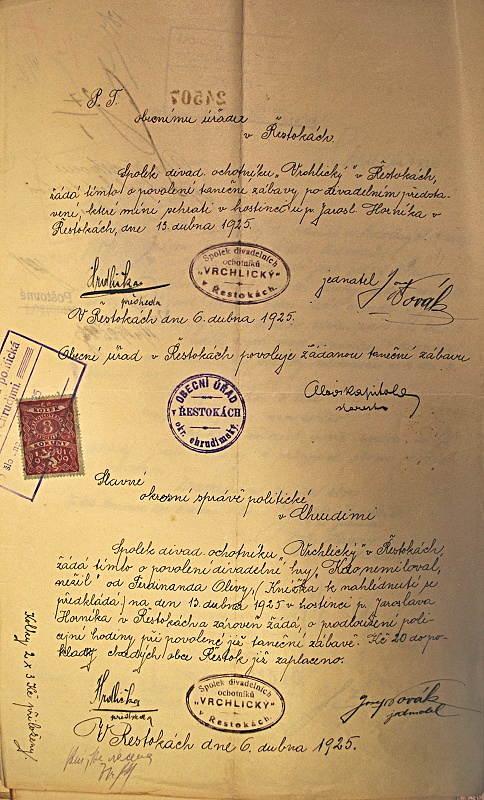 24507
P. T.
obecnímu úřadu
v Řestokách.
Spolek divad. ochotníků „Vrchlický" v Řestokách,
žádá tímto o povolení taneční zábavy, po divadelním předsta-
vení, které míní sehrati v hostinci u p. Jarosl. Horníka v
Řestokách, dne 13. dubna 1925.
Hrdlička
předseda
Spolek divadelních
ochotníků
„VRCHLICKÝ"
v Řestokách.
jednatel J Novák
V Řestokách dne 6. dubna 1925.
Obecní úřad v Řestokách povoluje žádanou taneční zábavu
OBECNÍ ÚŘAD
v ŘESTOKÁCH
okr. chrudimský.
Alois Kapitola
starosta
KOLEK
3
KORUNY
Slavné
okresní správě politické
v Chrudimi
Spolek divad. ochotníků „Vrchlický" v Řestokách,
žádá tímto o povolení divadelní hry, „Kdo nemiloval,
nežil" od Ferdinanda Olivy, (Knížka k nahlédnutí se
předkládá) na den 13. dubna 1925 v hostinci p. Jaroslava
Horníka v Řestokách a zároveň žádá, o prodloužení poli-
cejní hodiny, při povolené již taneční zábavě. Kč 20 do po-
kladny chudých obce Řestok již zaplaceno.
Kolky 2 x 3 Kč přiloženy!
Hrdlička
předseda
Spolek divadelních
ochotníků
„VRCHLICKÝ"
v Řestokách.
Josef Novák
jednatel
V Řestokách dne 6. dubna 1925.